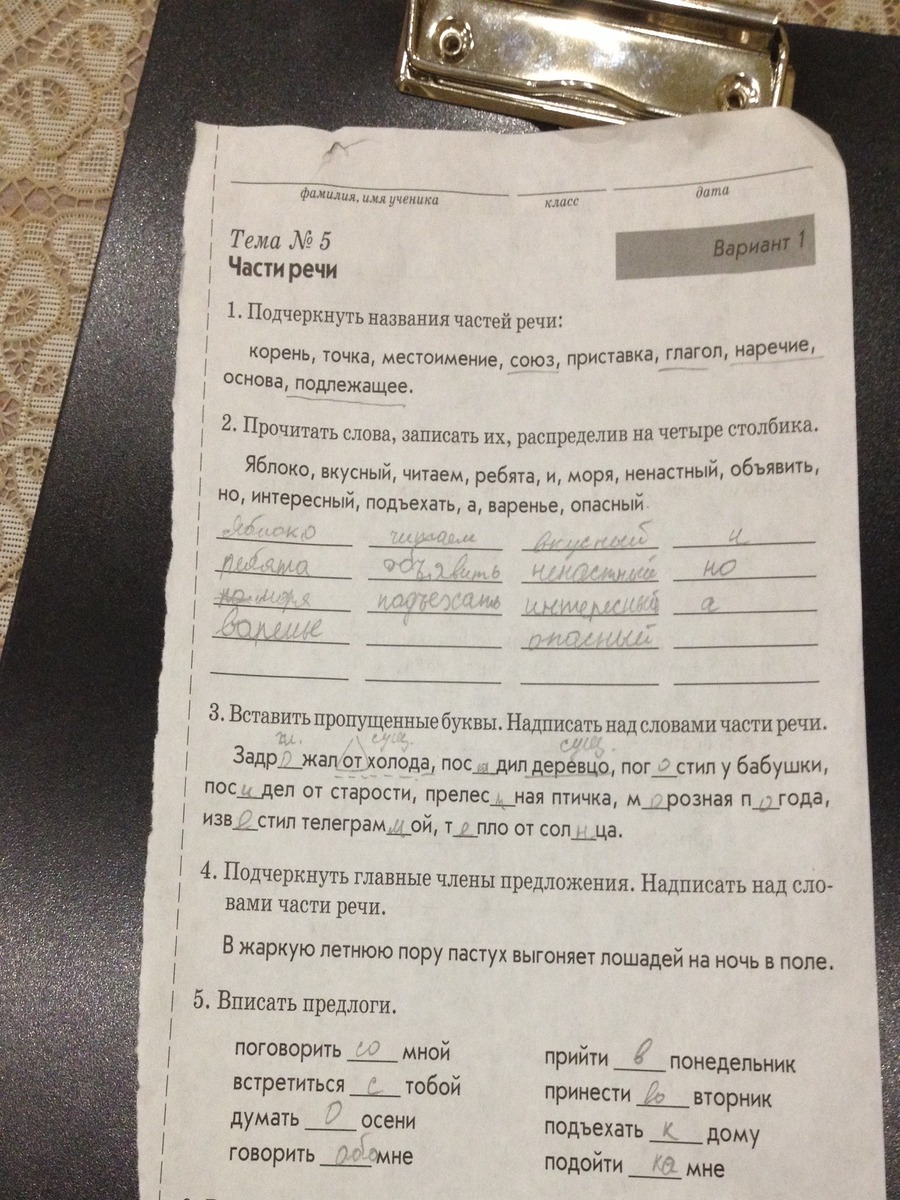 фамилия, имя ученика класс дата
Тема № 5 Вариант 1
Части речи
1. Подчеркнуть названия частей речи:
корень, точка, местоимение, союз, приставка, глагол, наречие,
основа, подлежащее.
2. Прочитать слова, записать их, распределив на четыре столбика.
Яблоко, вкусный, читаем, ребята, и, моря, ненастный, объявить,
но, интересный, подъехать, а, варенье, опасный
яблоко читаем вкусный и
ребята объявить ненастный но
моря подъехать интересный а
варенье опасный
3. Вставить пропущенные буквы. Надписать над словами части речи.
гл. сущ. сущ.
Задрожал от холода, посадил деревцо, погостил у бабушки,
посидел от старости, прелес_ная птичка, морозная погода,
известил телеграммой, тепло от солнца.
4. Подчеркнуть главные члены предложения. Надписать над сло-
вами части речи.
В жаркую летнюю пору пастух выгоняет лошадей на ночь в поле.
5. Вписать предлоги.
поговорить со мной прийти в понедельник
встретиться с тобой принести во вторник
думать о осени подъехать к дому
говорить обо мне подойти ко мне